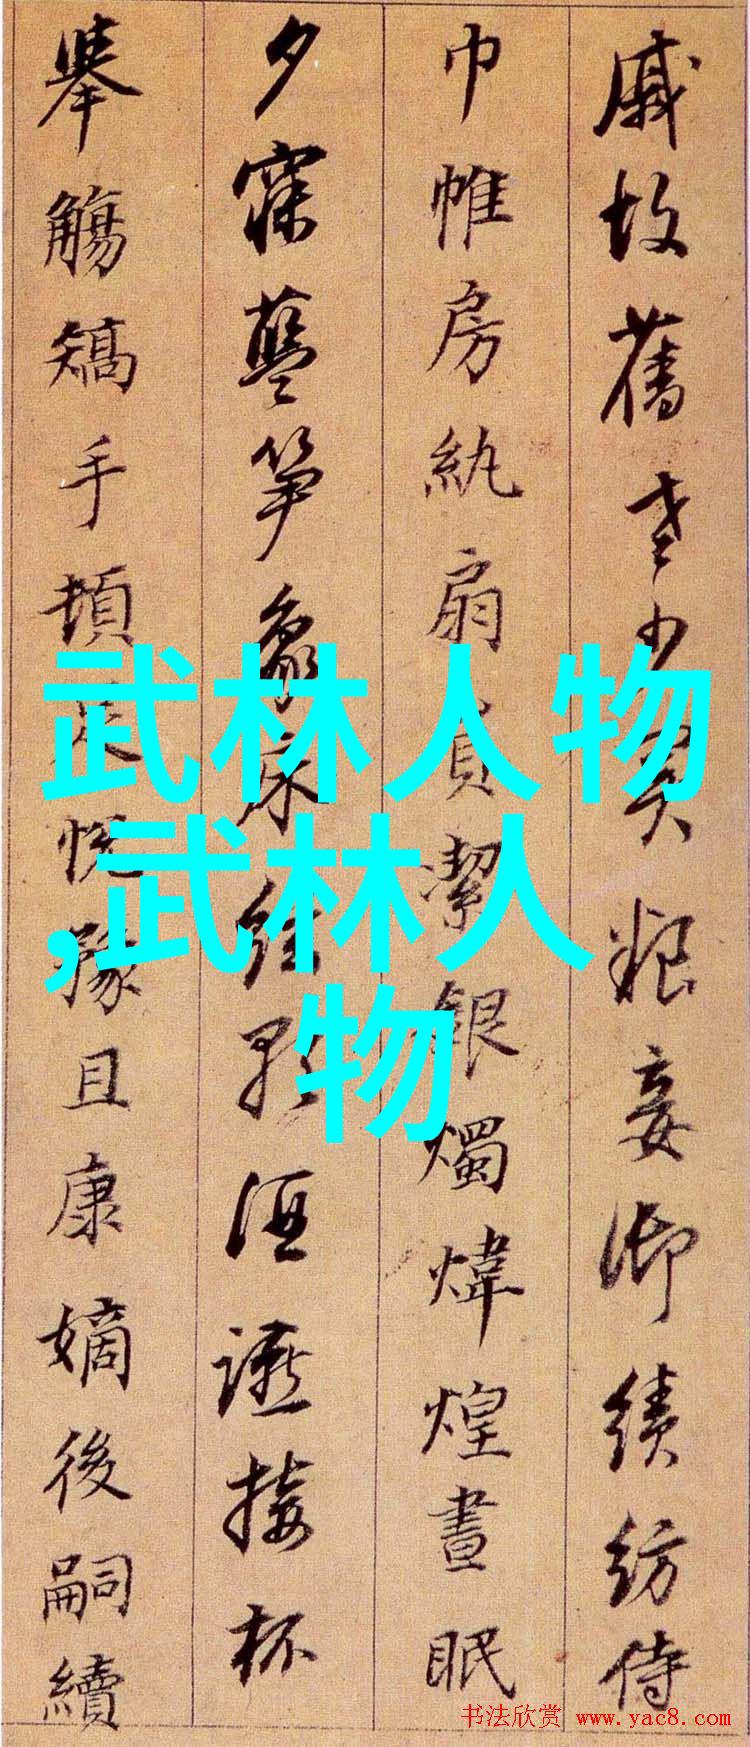 戚故舊老少異粮妾御績紡侍
巾帷房紈扇員潔銀燭煒煌晝眠
夕寐藍笋象床絃歌酒讌接杯
舉觴矯手頓足悅豫且康嫡後嗣續
武林人物
,武林人
物
书法欣赏 www.yac8.com